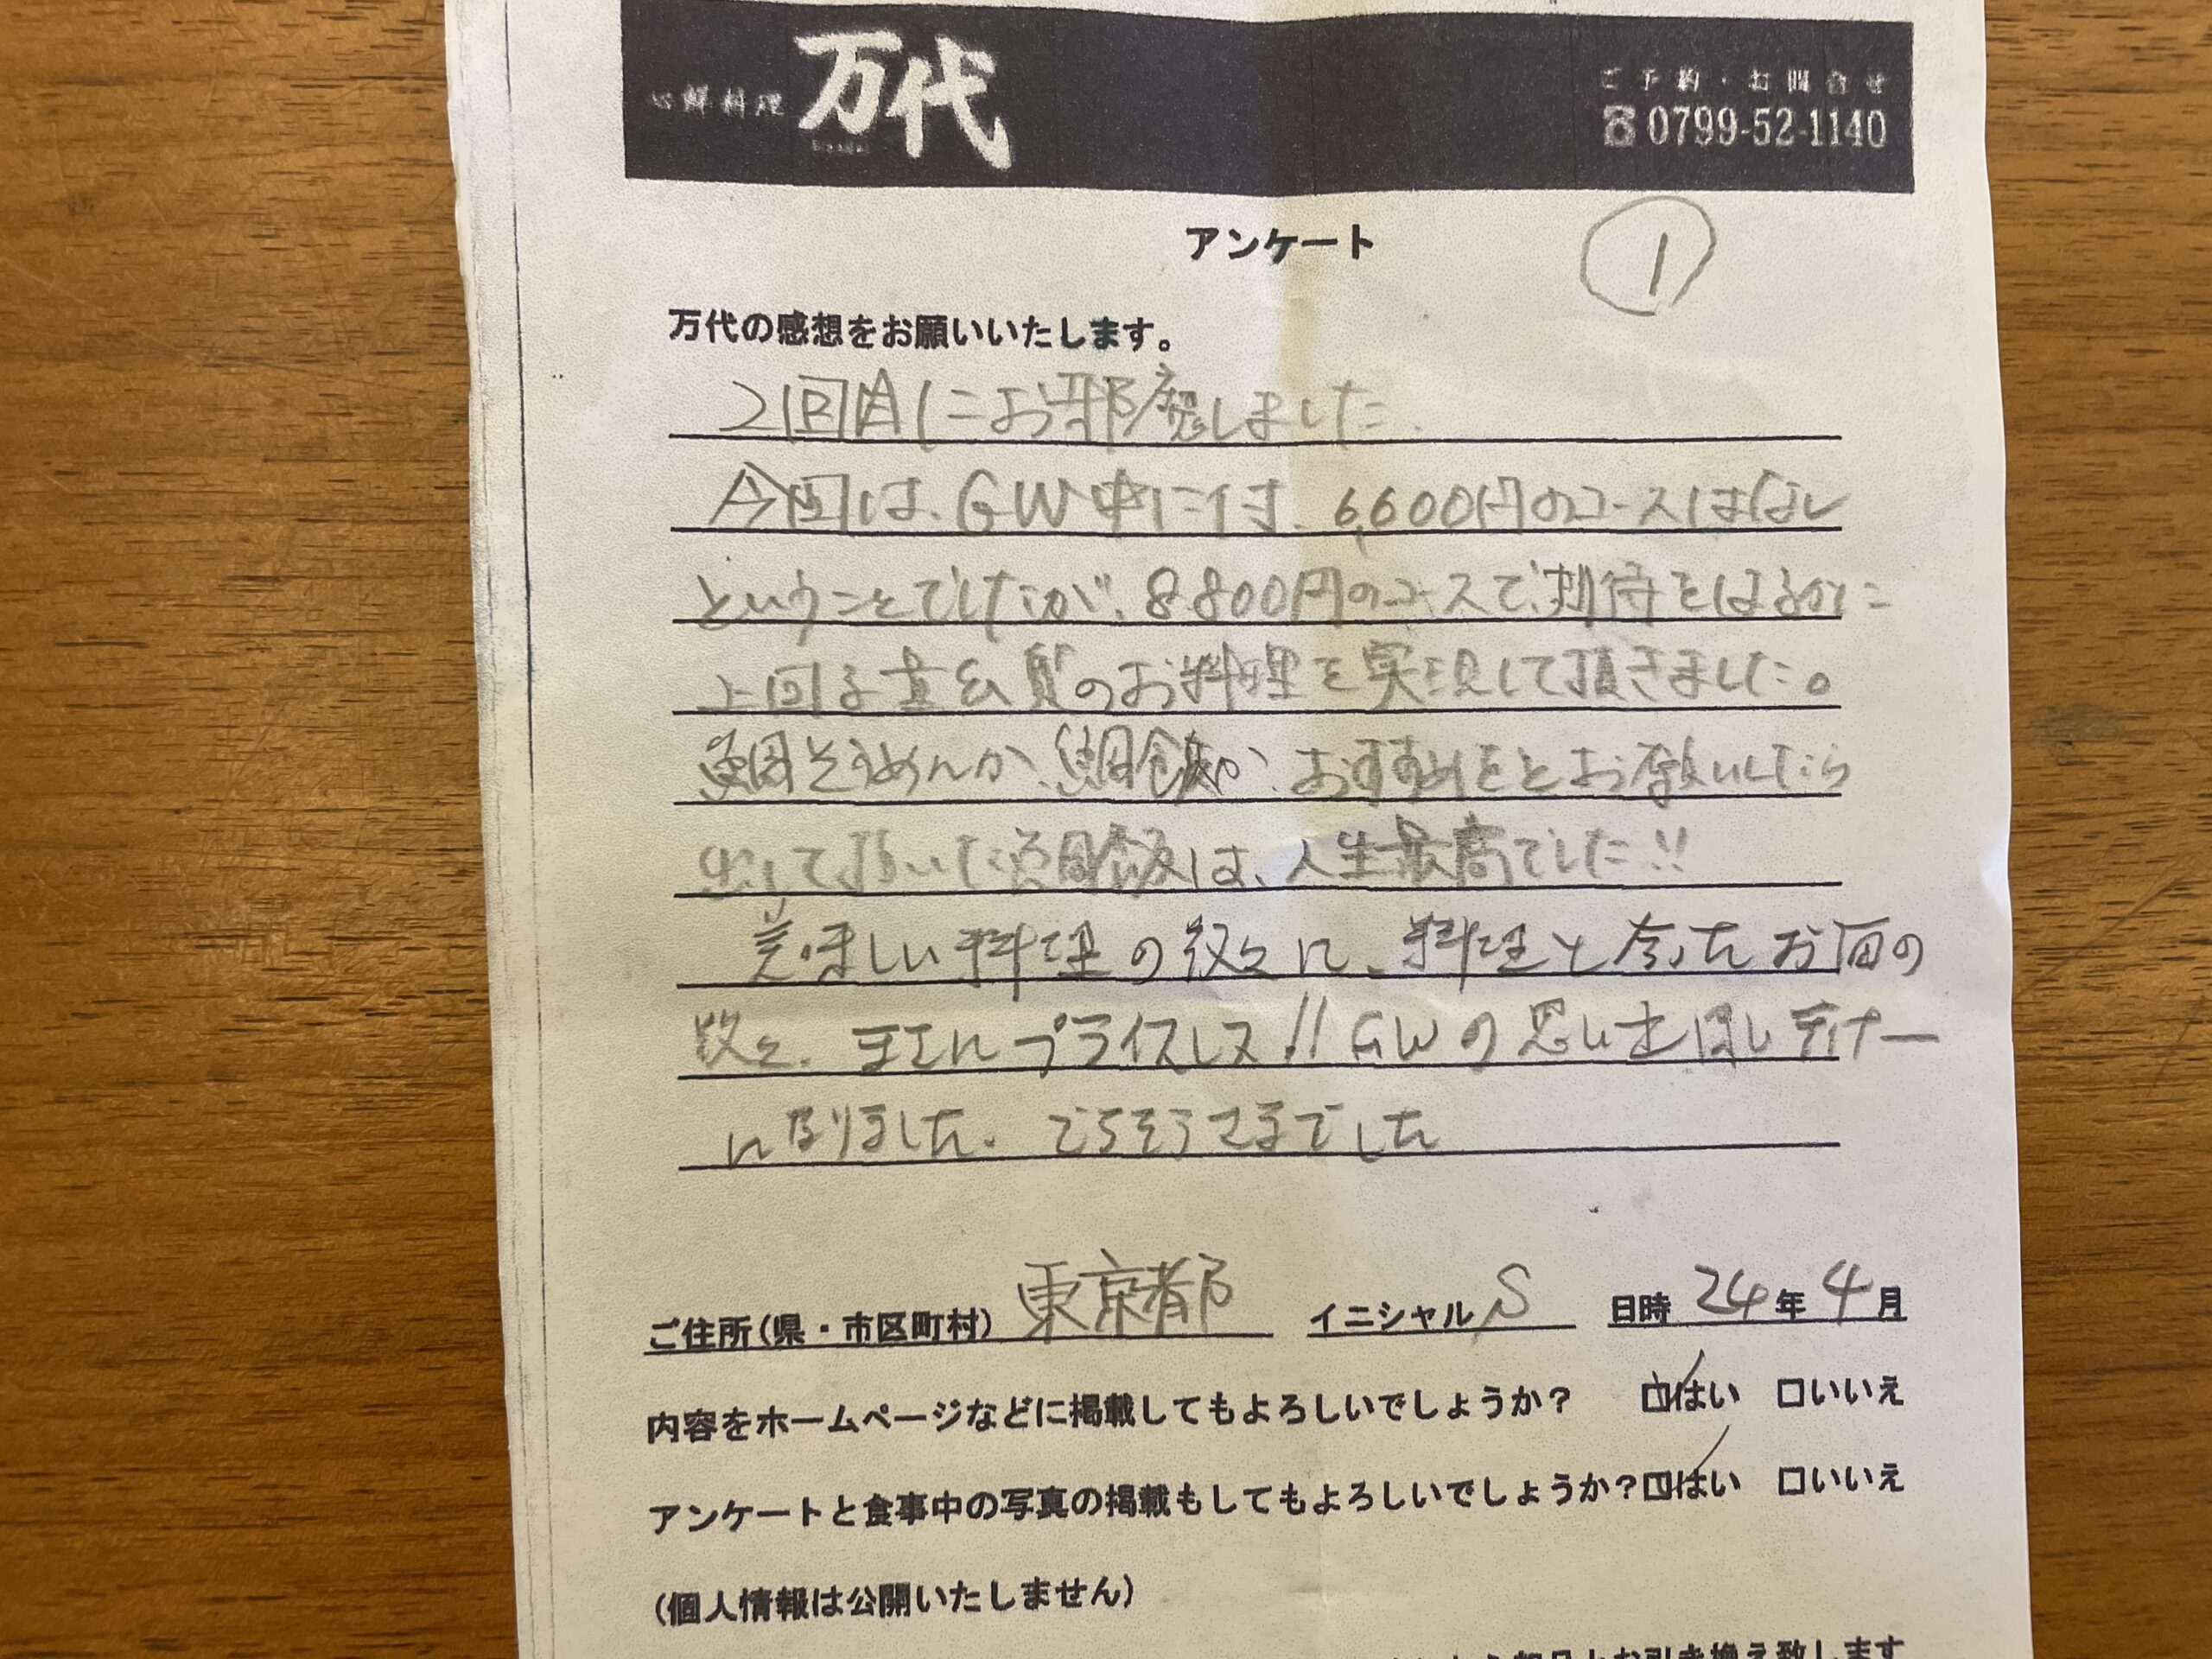 心鮮料理 万代
ご予約・お問合せ
☎0799-52-1140
アンケート
①
万代の感想をお願いいたします。
2回目にお邪魔しました。
今回は、GW中に付、6,600円のコースはなし
ということでしたが、8,800円のコースで、期待をはるかに
上回る高品質のお料理を実現して頂きました。
鯛そうめんか、鯛飯か、おすすめをとお願いしたら
出して頂いた鯛飯は、人生最高でした!!
美味しい料理の数々に、料理と合ったお皿の
数々。まさにプライスレス!!GWの思い出ほしディナー
になりました。ごちそうさまでした
ご住所(県・市区町村) 東京都 イニシャル S 日時 24年4月
内容をホームページなどに掲載してもよろしいでしょうか? ☑はい □いいえ
アンケートと食事中の写真の掲載もしてもよろしいでしょうか?☑はい □いいえ
(個人情報は公開いたしません)
お引き換え致します